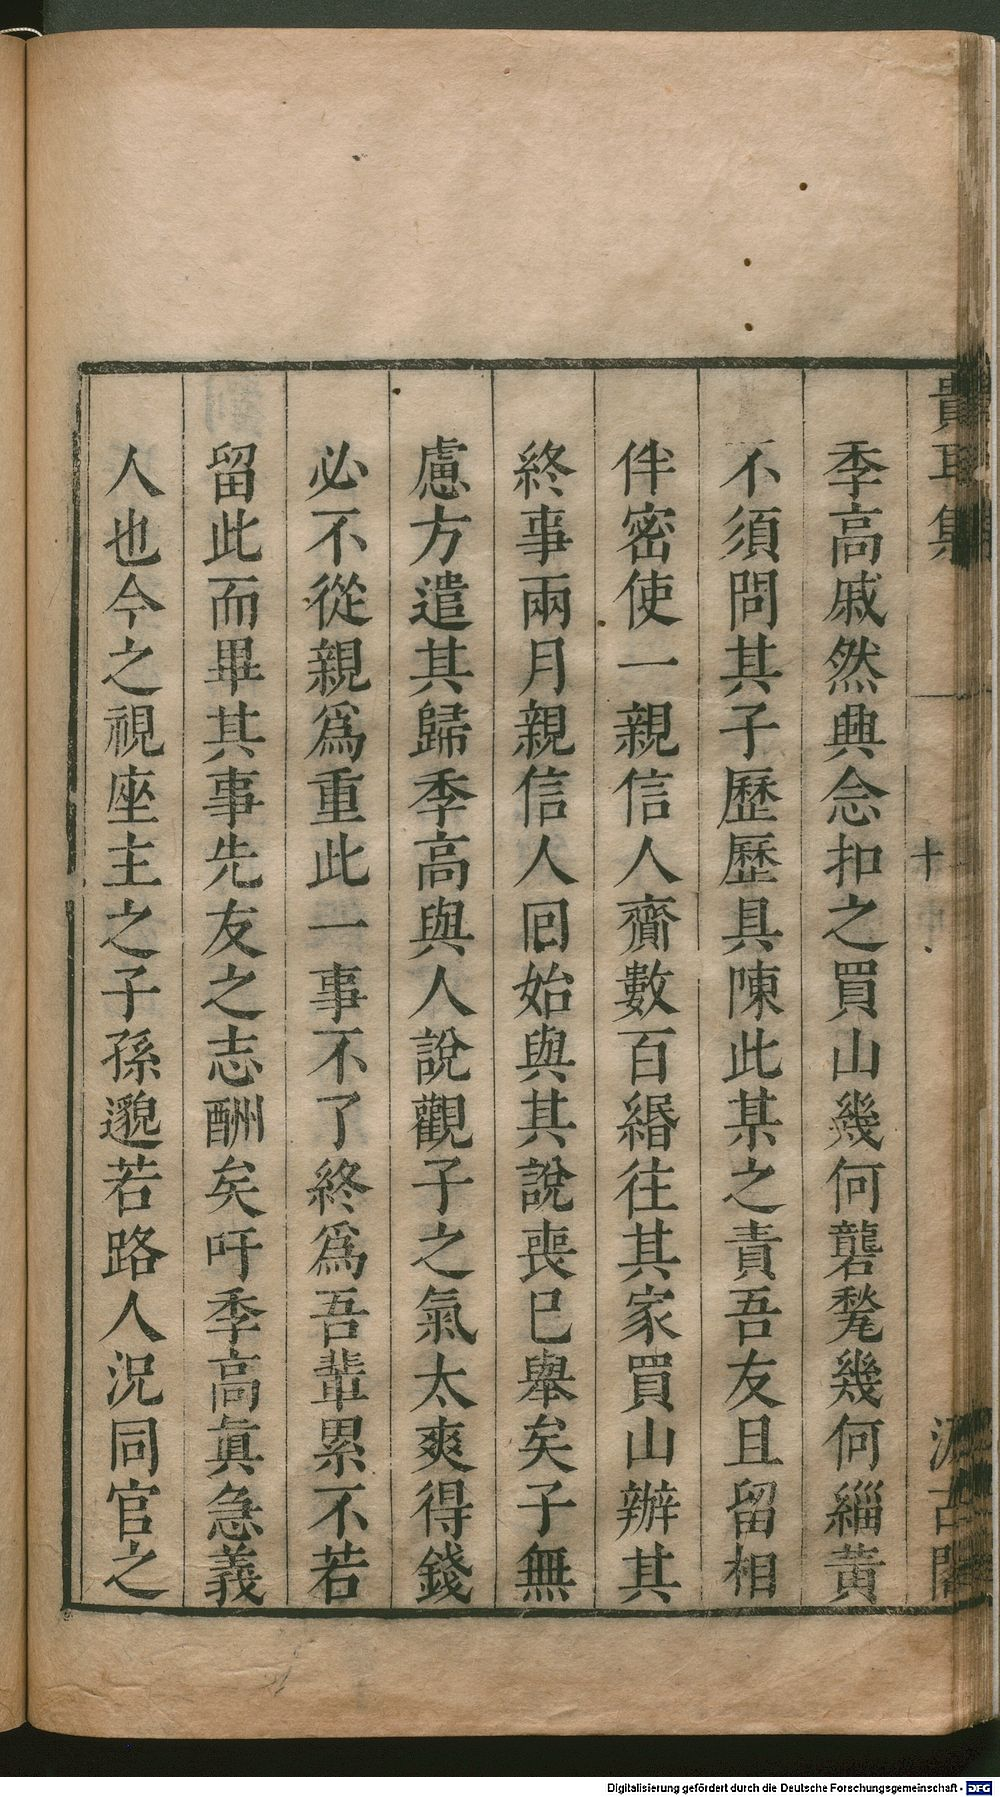 季高戚然興念扣之買山幾何礲甃幾何緇黃
不須問其子歷歷具陳此某之責吾友且留相
伴密使一親信人齎數百緡往其家買山辦其
終事兩月親信人囘始與其說喪已舉矣子無
慮方遣其歸季高與人說觀子之氣太爽得錢
必不從親爲重此一事不了終爲吾輩累不若
留此而畢其事先友之志酬矣吁季高眞急義
人也今之視座主之子孫邈若路人況同官之
貴耳集
十
汲古閣
Digitalisierung gefördert durch die Deutsche Forschungsgemeinschaft - DFG